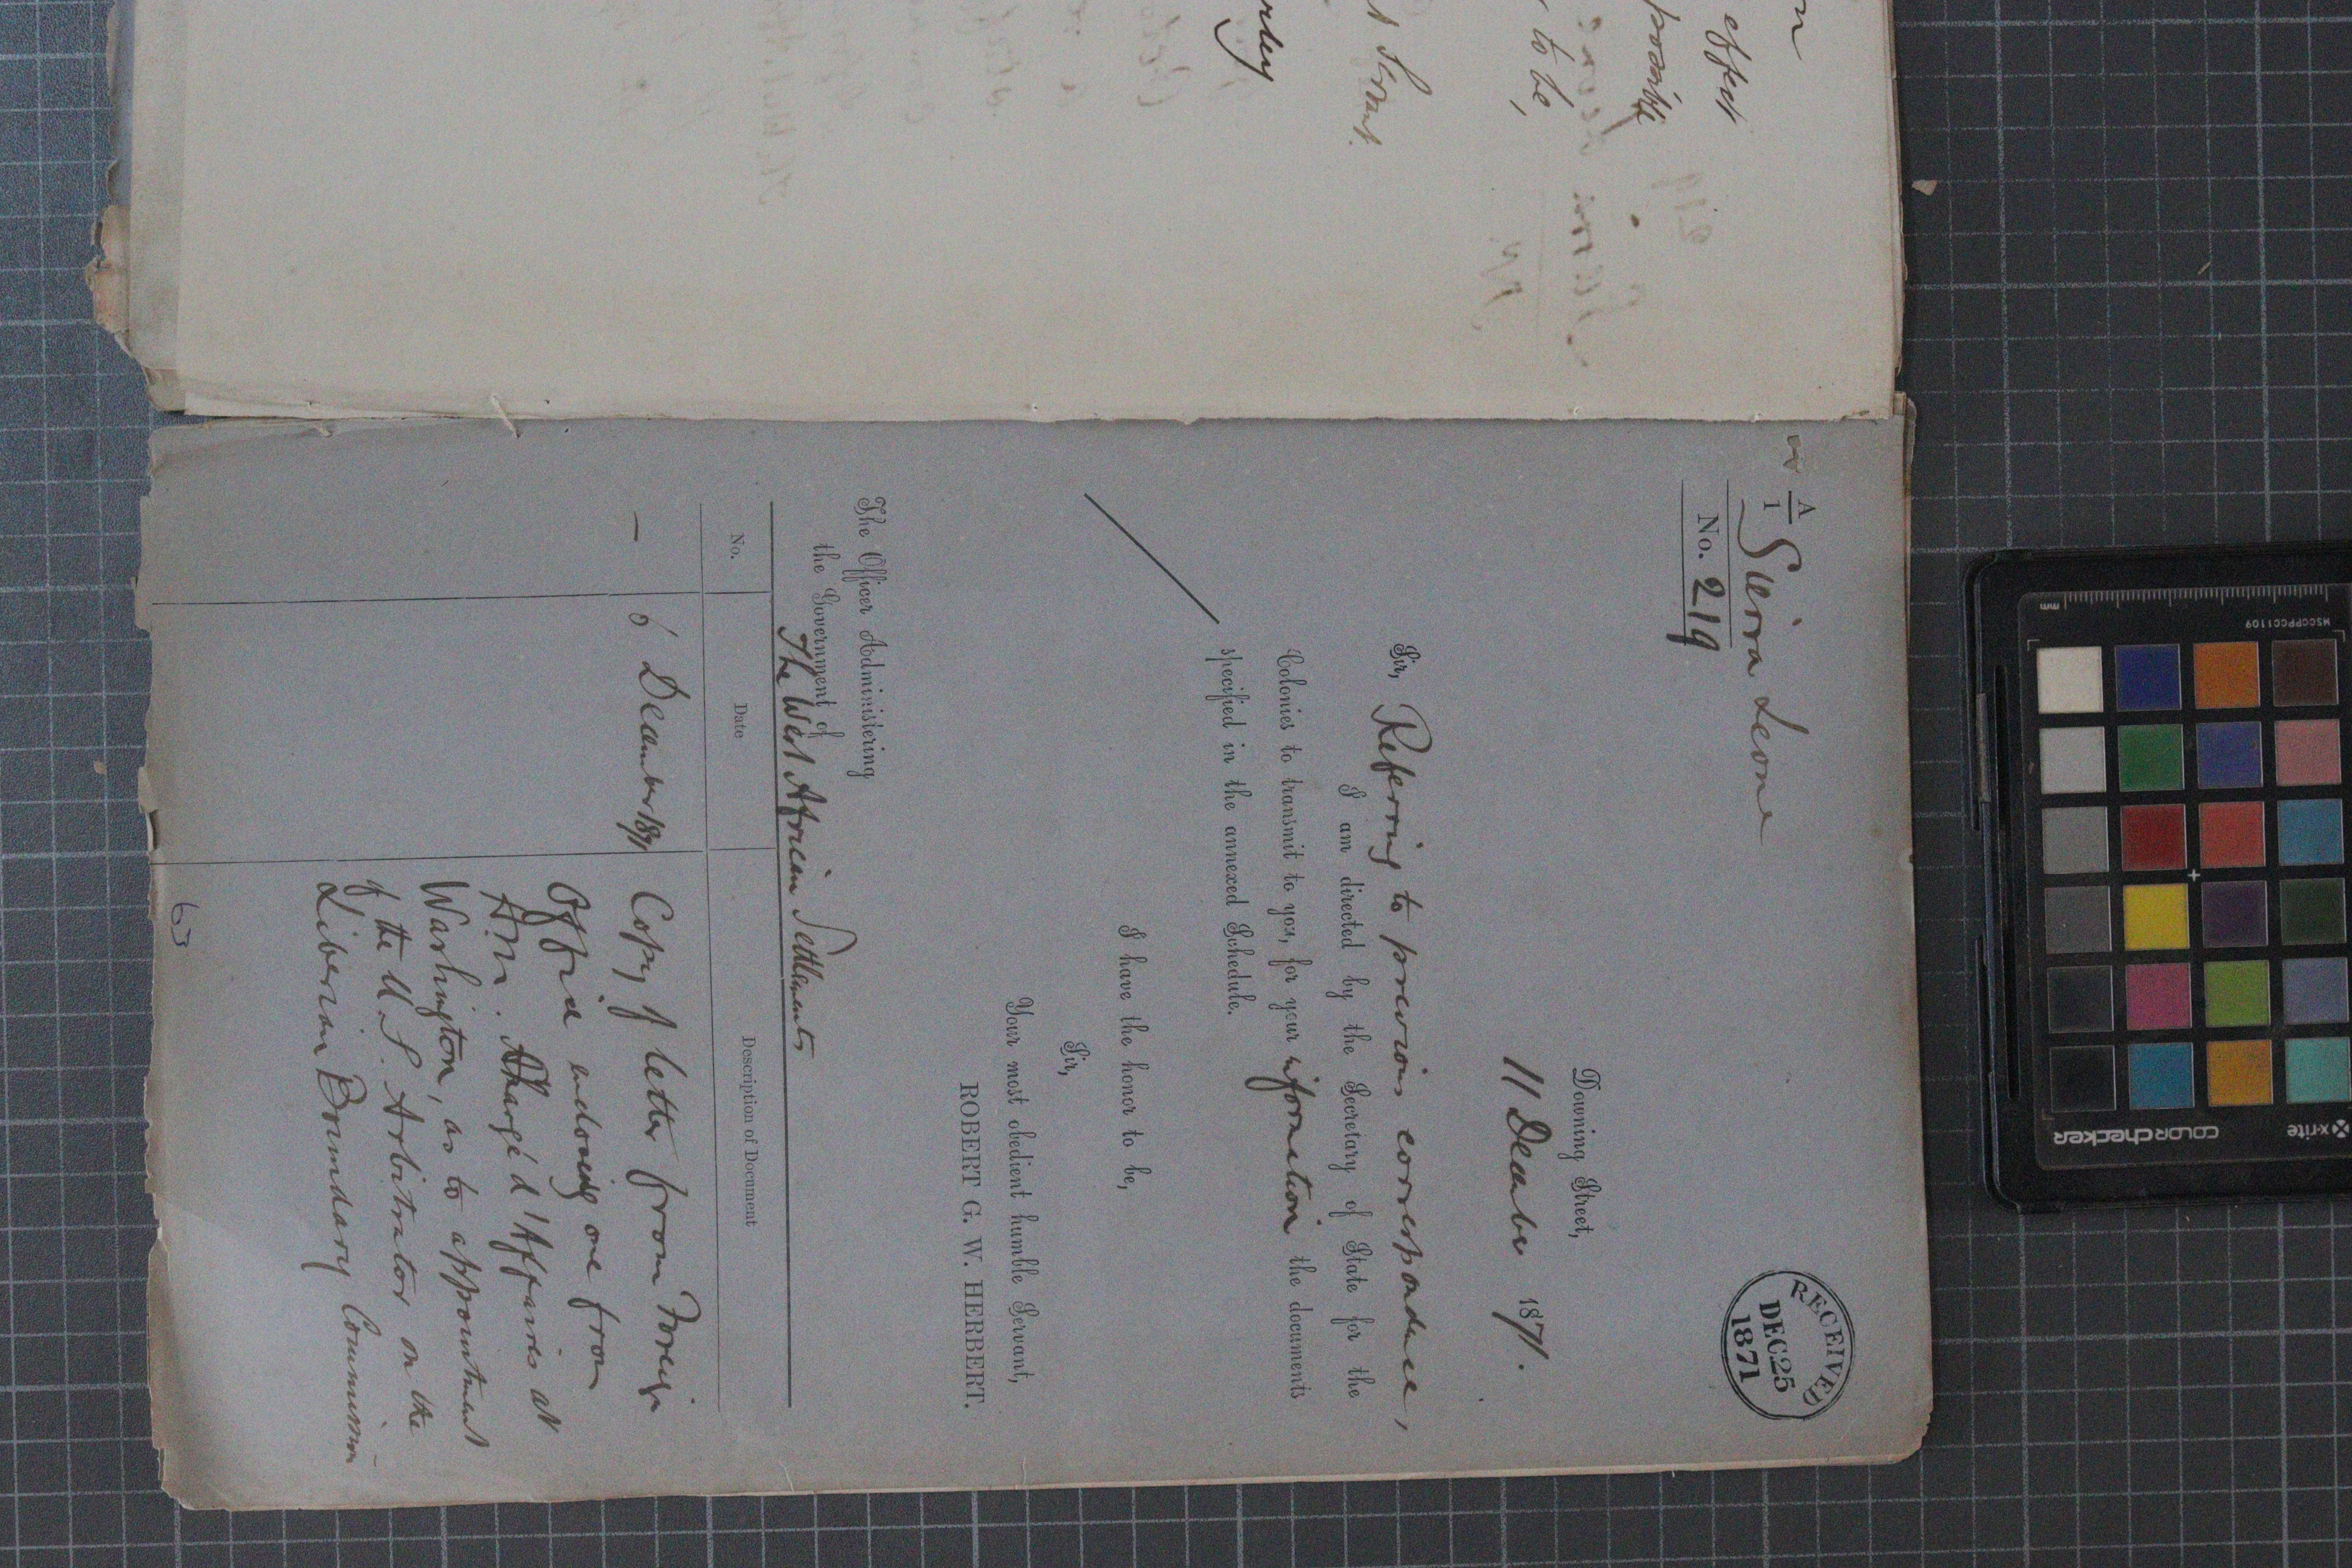 on
effect
possible
to be,
t Servant.
rley
A/1
Sierra Leone
No. 219
RECEIVED
DEC 25
1871
Downing Street,
11 December 1871.
Sir, Referring to previous correspondence,
I am directed by the Secretary of State for the
Colonies to transmit to you, for your information the documents
specified in the annexed Schedule.
I have the honor to be,
Sir,
Your most obedient humble Servant,
ROBERT G. W. HERBERT.
The Officer Administering
the Government of
The West African Settlements
No.
Date
Description of Document
—
6 December 1871
Copy of letter from Foreign
Office enclosing one from
H.M. Chargé d'Affaires at
Washington, as to appointment
of the U.S. Arbitrator on the
Liberian Boundary Commission
63
mm
MSCCPPCC1109
x-rite
colorchecker